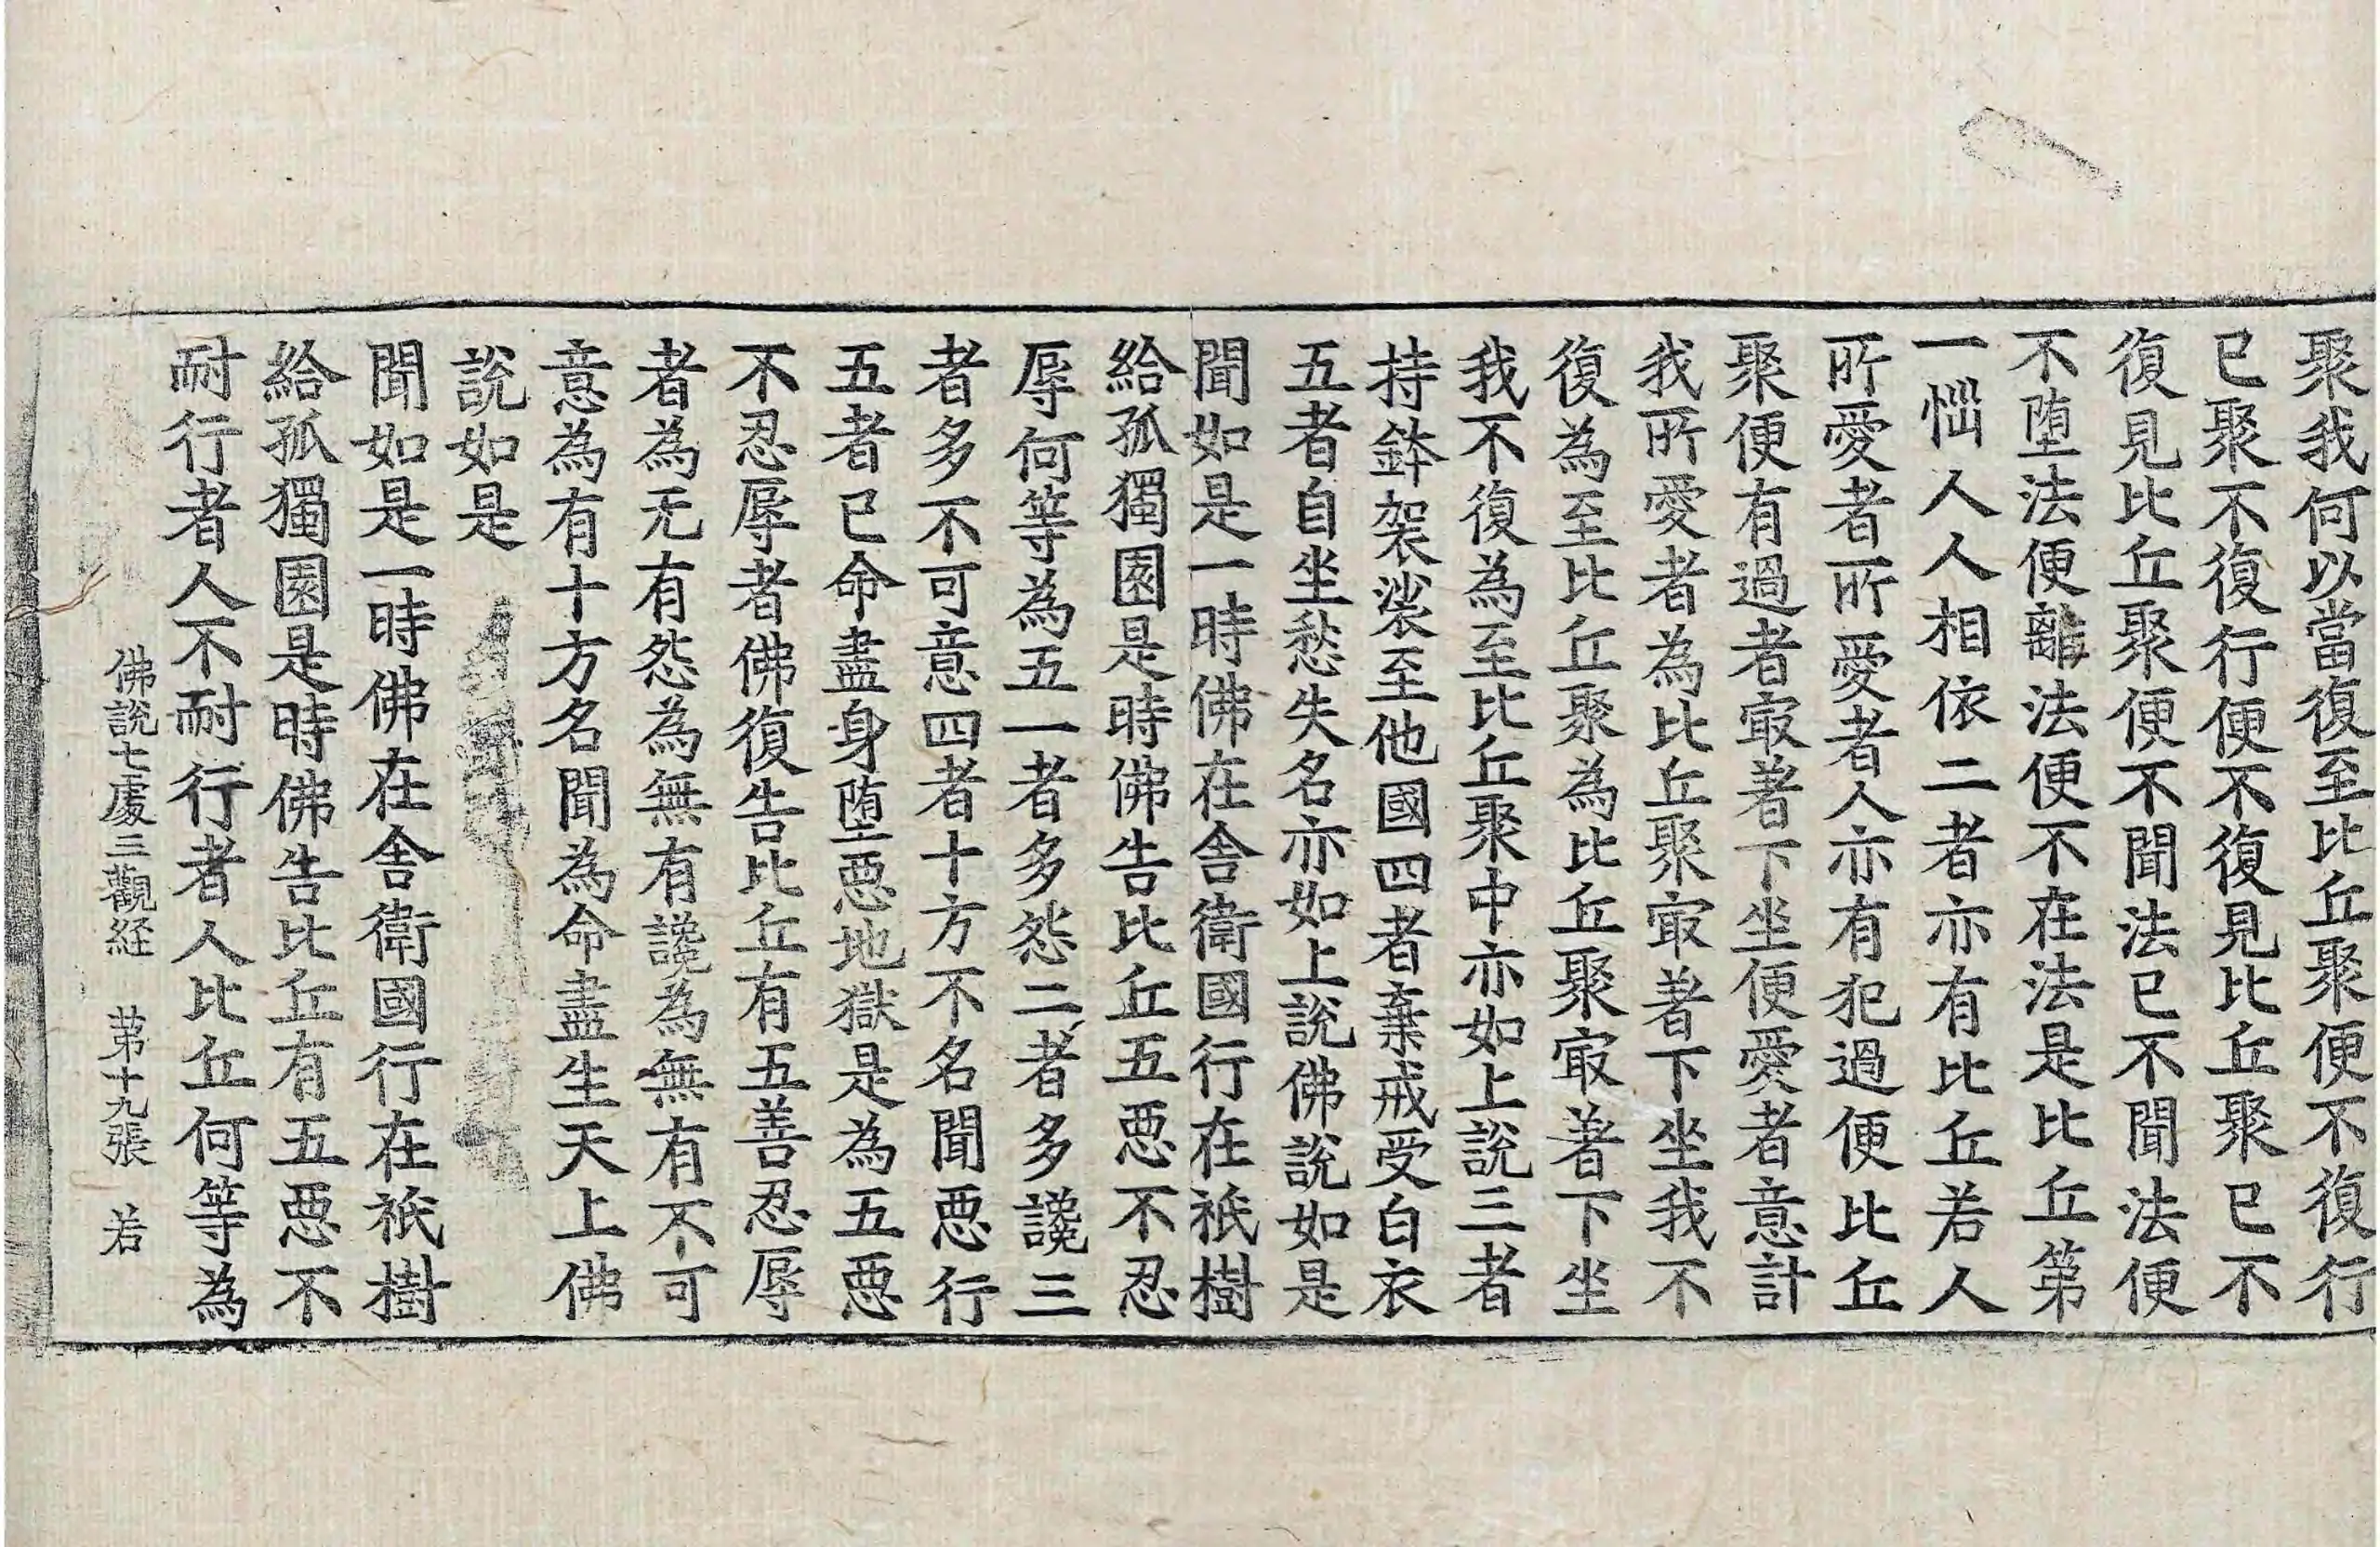 聚我何以當復至比丘聚便不復行
已聚不復行便不復見比丘聚已不
復見比丘聚便不聞法已不聞法便
不墮法便離法便不在法是比丘第
一惱人人相依二者亦有比丘若人
所愛者所愛者人亦有犯過便比丘
聚便有過者㝡著下坐便愛者意計
我所愛者為比丘聚㝡著下坐我不
復為至比丘聚為比丘聚㝡著下坐
我不復為至比丘聚中亦如上說三者
持鉢袈裟至他國四者棄戒受白衣
五者自坐愁失名亦如上說佛說如是
聞如是一時佛在舍衛國行在祇樹
給孤獨園是時佛告比丘五惡不忍
辱何等為五一者多怨二者多讒三
者多不可意四者十方不名聞惡行
五者已命盡身墮惡地獄是為五惡
不忍辱者佛復告比丘有五善忍辱
者為无有怨為無有讒為無有不可
意為有十方名聞為命盡生天上佛
說如是
聞如是一時佛在舍衛國行在祇樹
給孤獨園是時佛告比丘有五惡不
耐行者人不耐行者人比丘何等為
佛說七處三觀經 第十九張 若